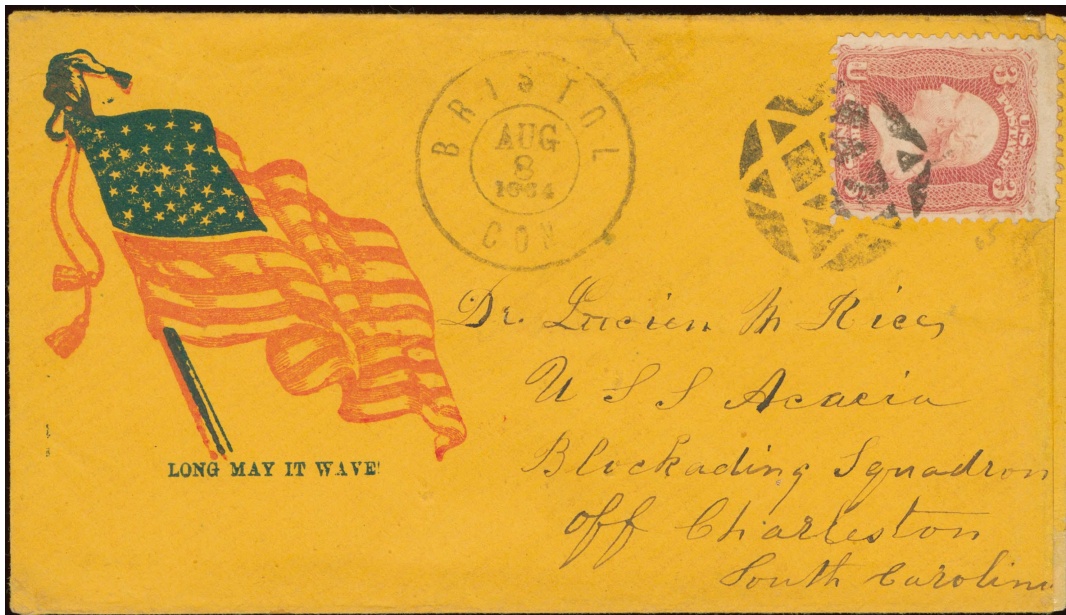 BRISTOL
AUG
8
1864
CON
U.S.
POSTAGE
3 3
U
LONG MAY IT WAVE!
Dr. Lucien M Rice,
U S S Acacia
Blockading Squadron
off Charleston
South Carolina